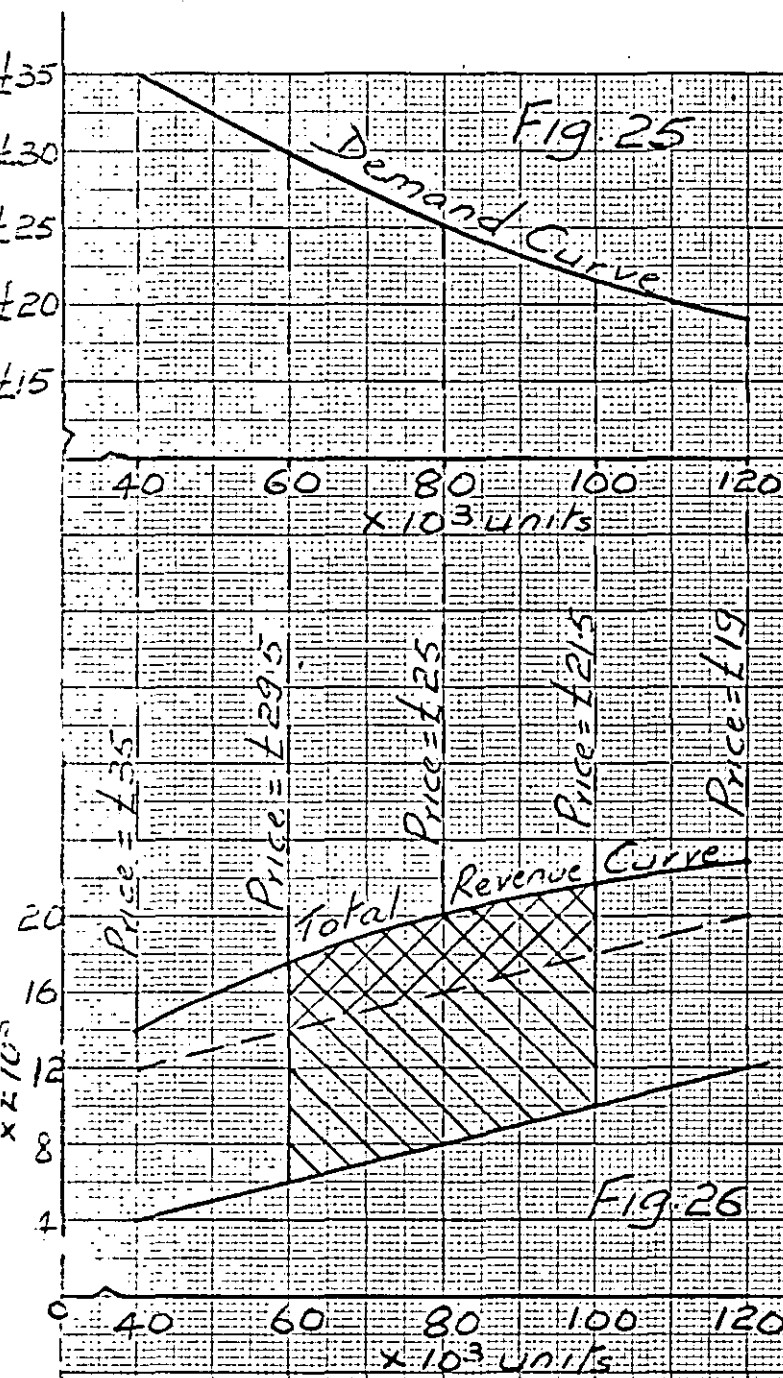 £35
Fig. 25
£30
Demand Curve
£25
£20
£15
40 60 80 100 120
×10³ units
Price = £35
Price = £29.5
Price = £25
Price = £21.5
Price = £19
Total Revenue Curve
20
16
12
8
4
Fig. 26
0 40 60 80 100 120
×10³ units